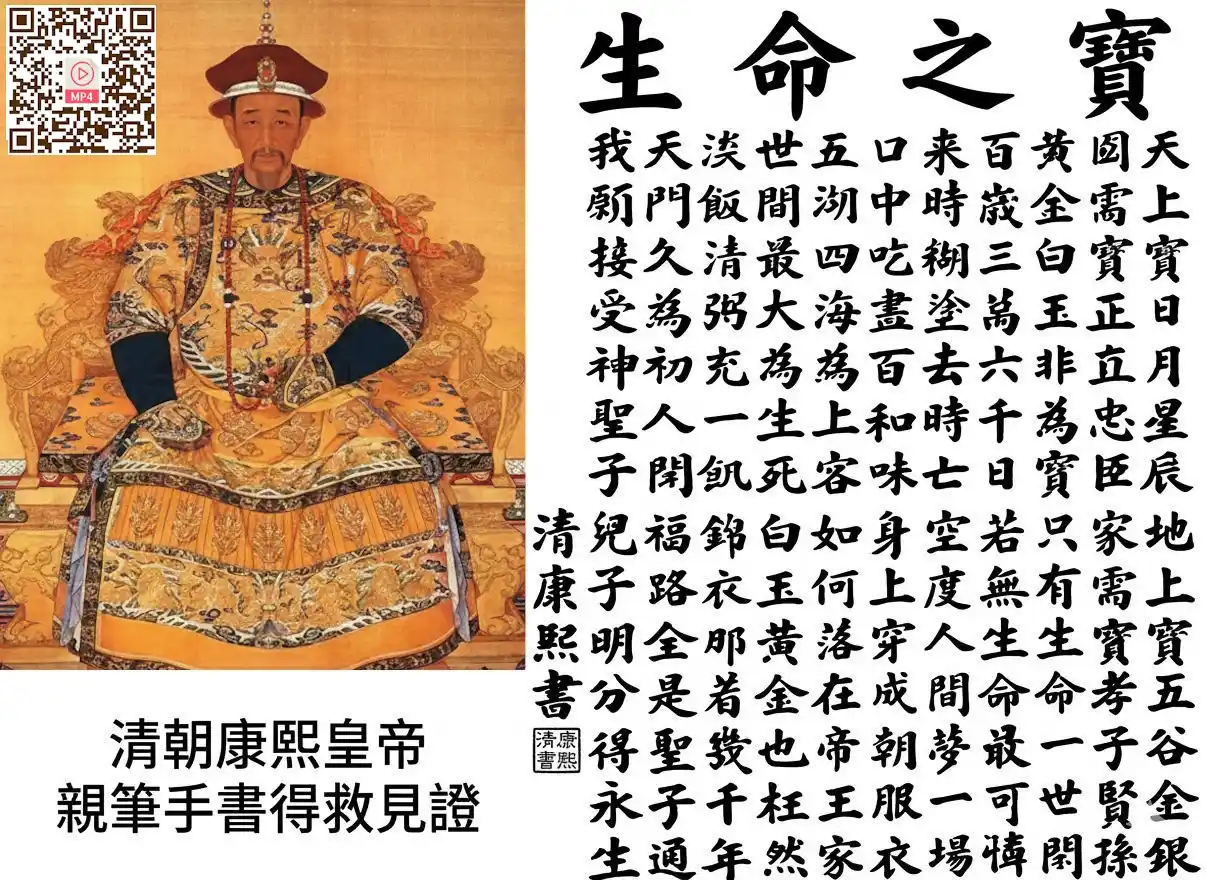 MP4
生命之寶
天上寶日月星辰地上寶五谷金銀
国需寶正立忠臣家需寶孝子賢孫
黃金白玉非為寶只有生命一世閑
百歲三萬六千日若無生命最可
来時糊塗去時亡空度人間夢一場
口中吃盡百和味身上穿成朝服衣
五湖四海為上客如何落在帝王家
世間最大為生死白玉黃金也枉然
淡飯清粥充一飢錦衣那着幾千年
天門久為初人閉福路全是聖子通
我願接受神聖子兒子明分得永生
清康熙書
康熙
清書
清朝康熙皇帝
親筆手書得救見證